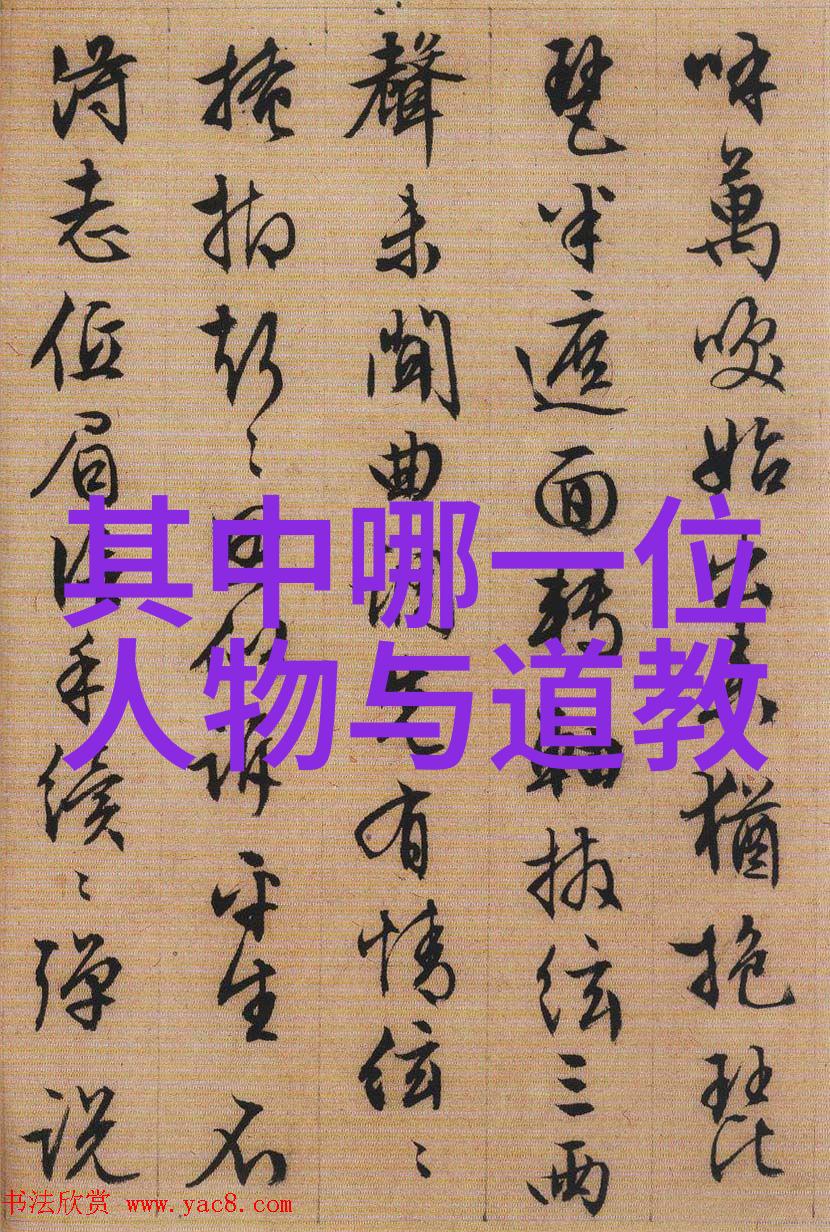 呼萬喚始出来猶抱琵
琶半遮面轉軸撥絃三兩
聲未聞曲調先有情絃〻
掩抑聲〻思似訴平生不
得志低眉信手續〻彈说
其中哪一位
人物与道教
书法欣赏 www.yac8.com